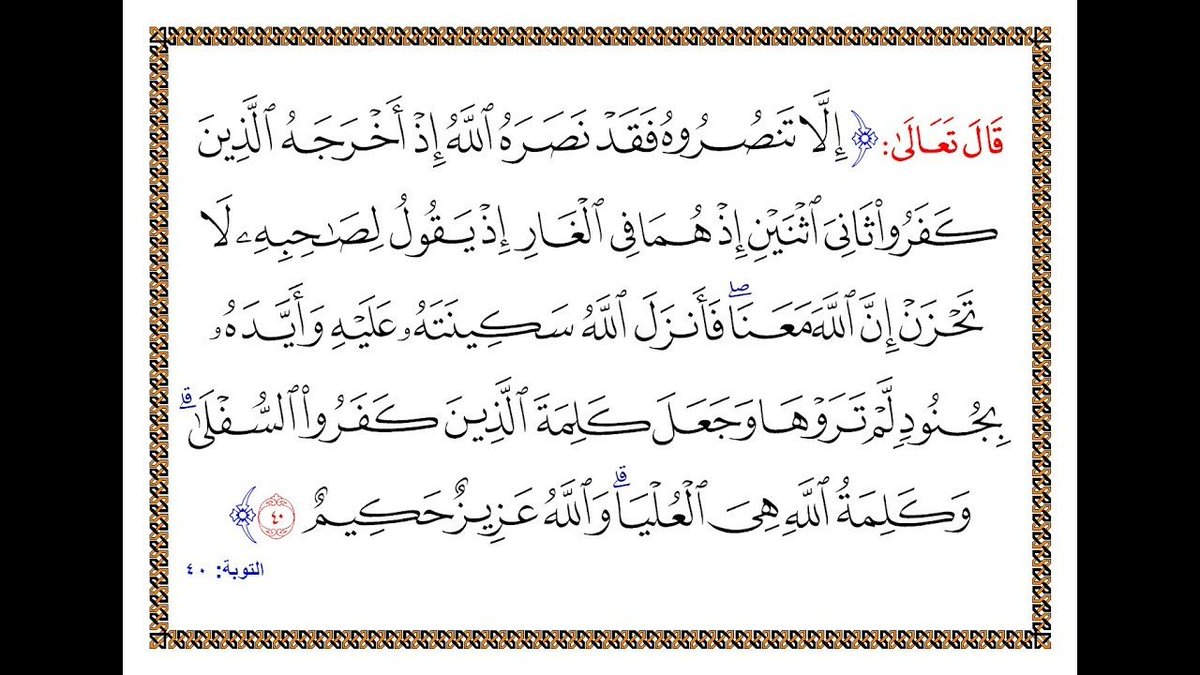 قَالَ تَعَالَىٰ: ﴿ إِلَّا تَنصُرُوهُ فَقَدۡ نَصَرَهُ ٱللَّهُ إِذۡ أَخۡرَجَهُ ٱلَّذِينَ
كَفَرُواْ ثَانِيَ ٱثۡنَيۡنِ إِذۡ هُمَا فِي ٱلۡغَارِ إِذۡ يَقُولُ لِصَٰحِبِهِۦ لَا
تَحۡزَنۡ إِنَّ ٱللَّهَ مَعَنَاۖ فَأَنزَلَ ٱللَّهُ سَكِينَتَهُۥ عَلَيۡهِ وَأَيَّدَهُۥ
بِجُنُودٖ لَّمۡ تَرَوۡهَا وَجَعَلَ كَلِمَةَ ٱلَّذِينَ كَفَرُواْ ٱلسُّفۡلَىٰۗ
وَكَلِمَةُ ٱللَّهِ هِيَ ٱلۡعُلۡيَاۗ وَٱللَّهُ عَزِيزٌ حَكِيمٌ ٤٠ ﴾
التوبة: ٤٠